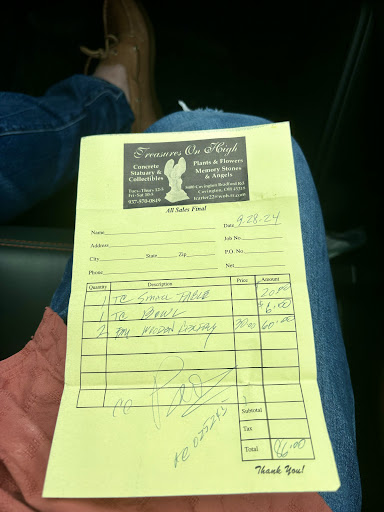 Treasures On High
Concrete
Statuary &
Collectibles
Plants & Flowers
Memory Stones
& Angels
Tues.-Thurs. 12-5
Fri.-Sat. 10-5
937-570-0819
Covington Bradford Rd.
Covington, OH 45318
All Sales Final
Name
Date 9-28-24
Address
Job No.
City State Zip
P.O. No.
Phone
Net
Quantity Description Price Amount
1 TC Small TABLE 20.00
1 TC BOWL 6.00
2 30.00 60.00
CC Pd
Subtotal
Tax
Total 86.00
Thank You!